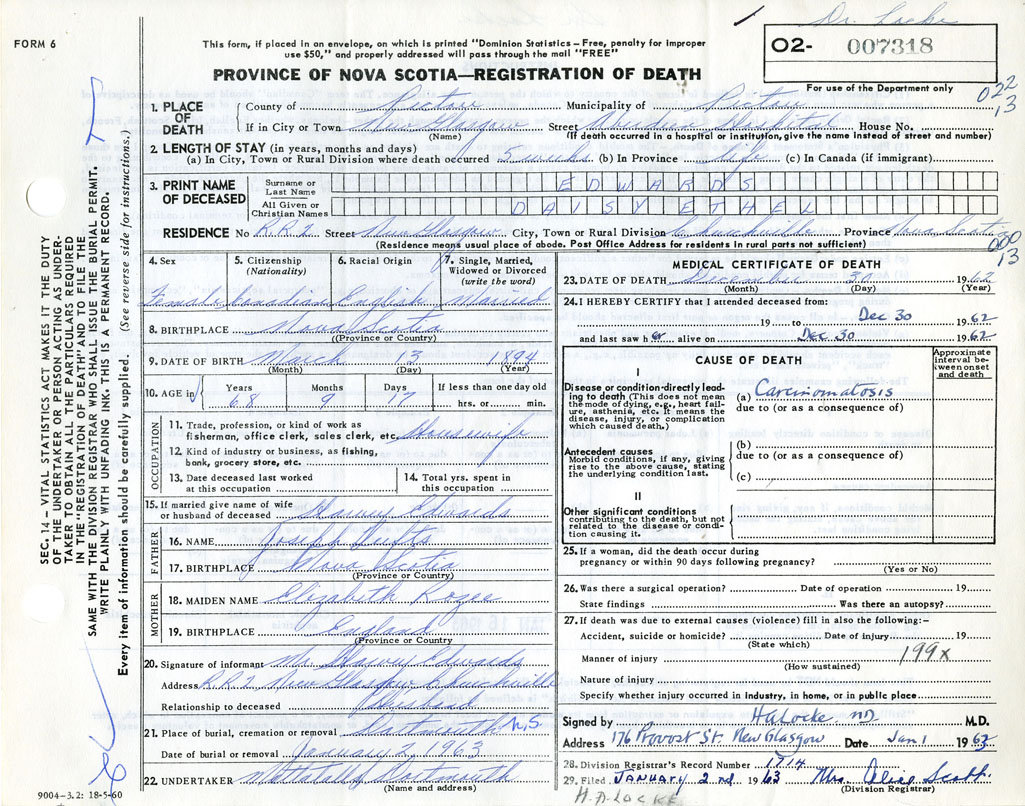 Dr. Locke
FORM 6
This form, if placed in an envelope, on which is printed "Dominion Statistics – Free, penalty for improper
use $50," and properly addressed will pass through the mail "FREE"
O2- 007318
For use of the Department only
PROVINCE OF NOVA SCOTIA—REGISTRATION OF DEATH
022
13
1. PLACE OF DEATH
County of Pictou Municipality of Pictou
If in City or Town New Glasgow Street Aberdeen Hospital House No.
(Name) (If death occurred in a hospital or institution, give the name instead of street and number)
2. LENGTH OF STAY (in years, months and days)
(a) In City, Town or Rural Division where death occurred 5 weeks (b) In Province life (c) In Canada (if immigrant)
3. PRINT NAME OF DECEASED
Surname or Last Name EDWARDS
All Given or Christian Names DAISY ETHEL
RESIDENCE No R.R.2 Street New Glasgow City, Town or Rural Division Churchville Province Nova Scotia
(Residence means usual place of abode. Post Office Address for residents in rural parts not sufficient)
000
13
4. Sex 5. Citizenship (Nationality) 6. Racial Origin 7. Single, Married, Widowed or Divorced (write the word)
Female Canadian English Married
8. BIRTHPLACE Nova Scotia
(Province or Country)
9. DATE OF BIRTH March 13 1894
(Month) (Day) (Year)
10. AGE in Years Months Days If less than one day old
68 9 17 hrs. or min.
OCCUPATION
11. Trade, profession, or kind of work as
fisherman, office clerk, sales clerk, etc. Housewife
12. Kind of industry or business, as fishing,
bank, grocery store, etc.
13. Date deceased last worked at this occupation
14. Total yrs. spent in this occupation
15. If married give name of wife
or husband of deceased Harvey Edwards
FATHER
16. NAME Joseph
17. BIRTHPLACE Nova Scotia
(Province or Country)
MOTHER
18. MAIDEN NAME Elizabeth
19. BIRTHPLACE England
(Province or Country)
20. Signature of informant Mr. Harvey Edwards
Address R.R.2 New Glasgow Churchville
Relationship to deceased Husband
21. Place of burial, cremation or removal Dartmouth N.S.
Date of burial or removal January 2, 1963
22. UNDERTAKER Dartmouth
(Name and address)
MEDICAL CERTIFICATE OF DEATH
23. DATE OF DEATH December 30 1962
(Month) (Day) (Year)
24. I HEREBY CERTIFY that I attended deceased from:
19 to Dec 30 1962
and last saw her alive on Dec 30 1962
CAUSE OF DEATH
Approximate interval between onset and death
I
Disease or condition directly leading to death (This does not mean
the mode of dying, e.g., heart failure, asthenia, etc. It means the
disease, injury, or complication
which caused death.)
(a) Carcinomatosis
due to (or as a consequence of)
Antecedent causes
Morbid conditions, if any, giving
rise to the above cause, stating
the underlying condition last.
(b)
due to (or as a consequence of)
(c)
II
Other significant conditions
contributing to the death, but not
related to the disease or condition causing it.
25. If a woman, did the death occur during
pregnancy or within 90 days following pregnancy?
(Yes or No)
26. Was there a surgical operation? Date of operation 19
State findings Was there an autopsy?
27. If death was due to external causes (violence) fill in also the following:-
Accident, suicide or homicide? Date of injury 19
(State which)
Manner of injury 199X
(How sustained)
Nature of injury
Specify whether injury occurred in industry, in home, or in public place
Signed by H A Locke MD M.D.
Address 176 Provost St. New Glasgow Date Jan 1 1963
28. Division Registrar's Record Number 1714
29. Filed JANUARY 2nd 1963 Mrs. Scott
(Division Registrar)
H.A. LOCKE
9004-3.2: 18-5-60
SEC. 14 – VITAL STATISTICS ACT MAKES IT THE DUTY
OF THE UNDERTAKER OR PERSON ACTING AS UNDER-
TAKER TO OBTAIN ALL THE PARTICULARS REQUIRED
IN THE "REGISTRATION OF DEATH" AND TO FILE THE
SAME WITH THE DIVISION REGISTRAR WHO SHALL ISSUE THE BURIAL PERMIT.
WRITE PLAINLY WITH UNFADING INK. THIS IS A PERMANENT RECORD.
Every item of information should be carefully supplied. (See reverse side for instructions.)